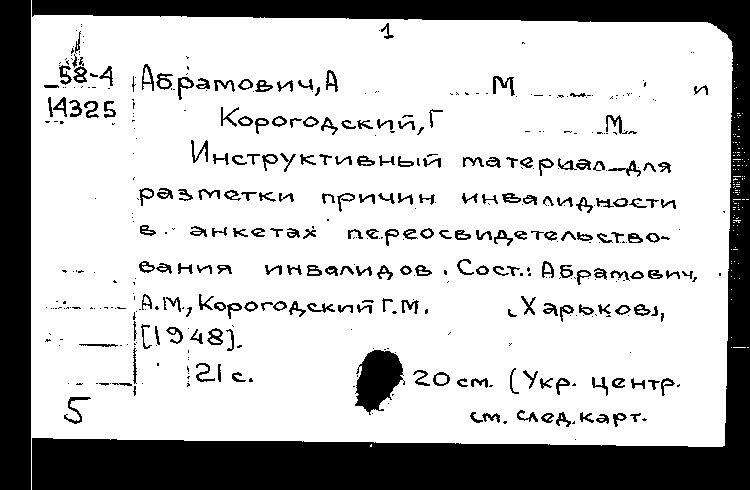 1
58-4 Абрамович, А М и
14325 Корогодский, Г М
Инструктивный материал для
разметки причин инвалидности
в анкетах переосвидетельство-
вания инвалидов. Сост.: Абрамович,
А.М, Корогодский Г.М. Харьков,
[1948].
21 с. 20 см. (Укр. центр.
5 см. след. карт.